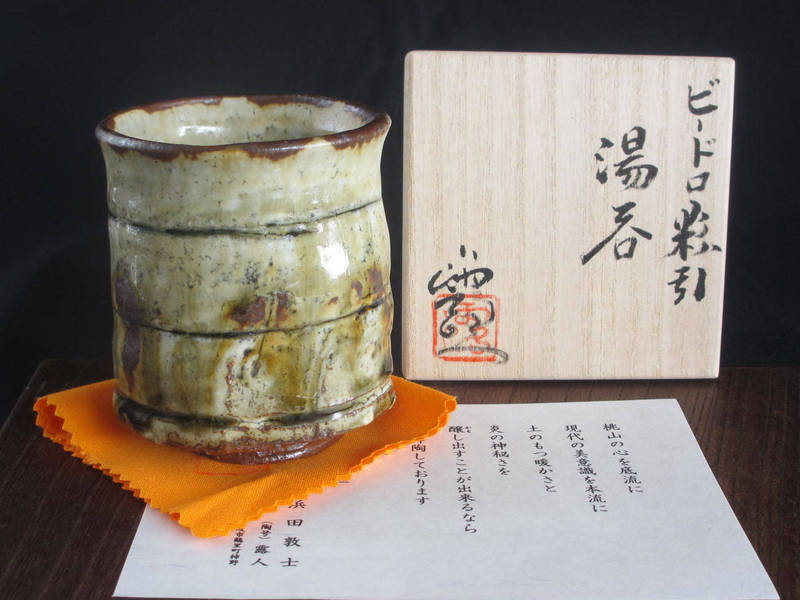 ビードロ粉引
湯呑
桃山の心を底流に
現代の美意識を本流に
土のもつ暖かさと
炎の神秘さを
醸し出すことが出来るなら
陶しております
浜田敦士
(陶号) 露人
市鶴里町柿野